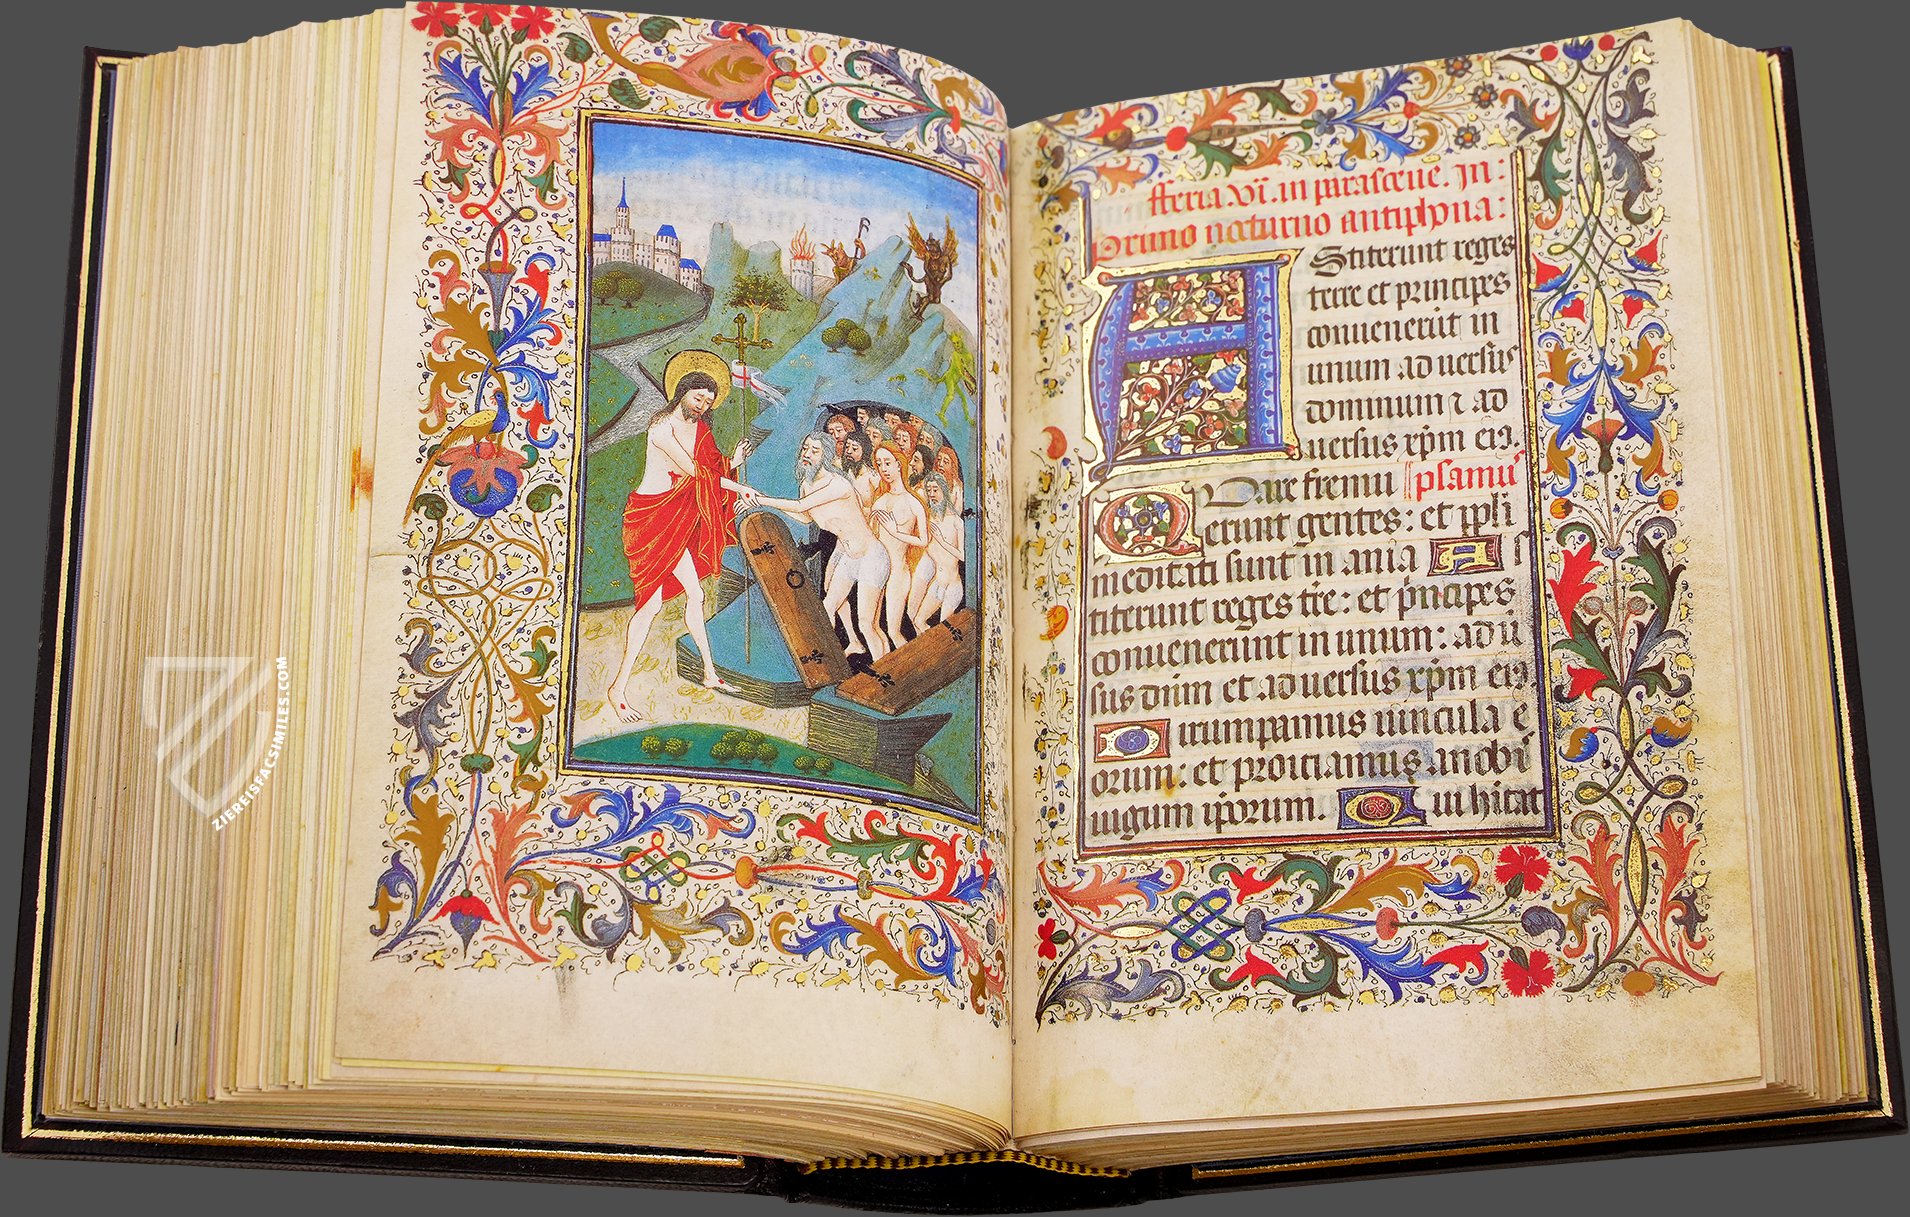 fferia.vi. in parasceue. In:
Primo nocturno antiphona:
AStiterunt reges
terre et principes
conuenerūt in
unum ad uersus
dominum ⁊ ad
uersus xp̄m eiꝯ.
Quare fremu psamus
erunt gentes: et ppli
meditati sunt in ania As
titerunt reges tr̄e: et pncipes
conuenerunt in unum: ad u
sus dnm et ad uersus xp̄m eiꝯ.
Dirumpamus uincula e
orum: et proiciamus a nobis
iugum ip̄orum. Qui hitat
ZIEREISFACSIMILES.COM